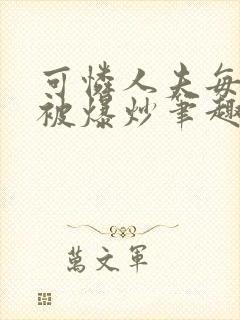 可憐人夫每
被爆炒筆趣
萬文軍